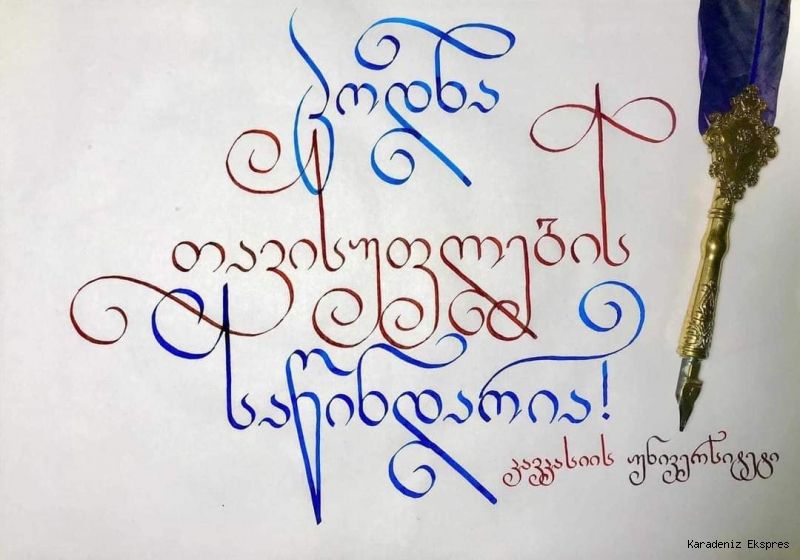 ცოდნა
თავისუფლების
საწინდარია!
კავკასიის უნივერსიტეტი
Karadeniz Ekspres